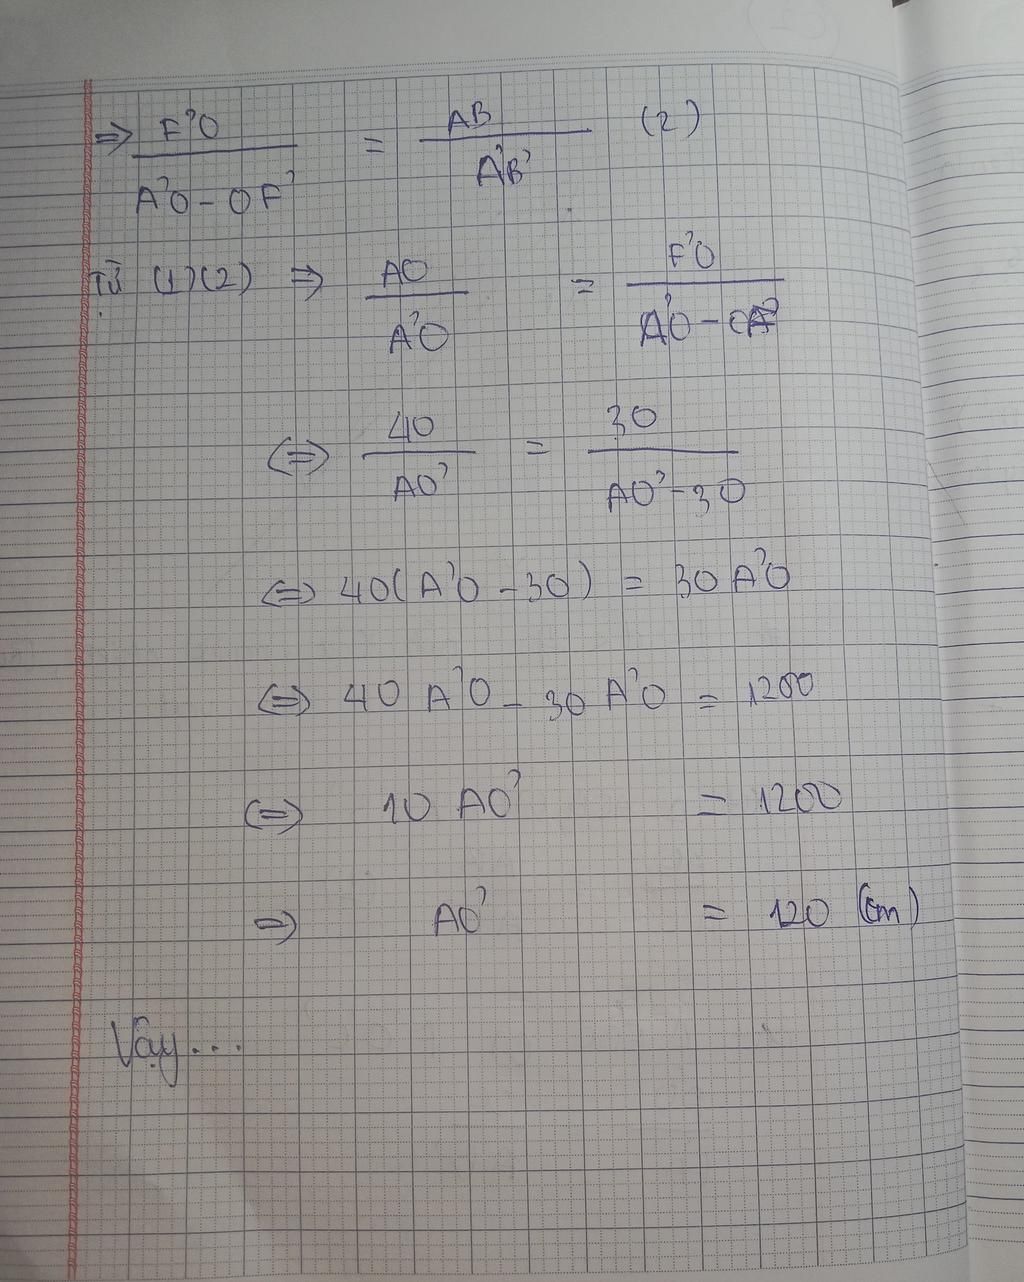 ⇒ F'O / (A'O - OF') = AB / A'B' (2)
Từ (1)(2) ⇒ AO / A'O = F'O / (A'O - OA')
⇔ 40 / AO' = 30 / (AO' - 30)
⇔ 40(A'O - 30) = 30 A'O
⇔ 40 A'O - 30 A'O = 1200
⇔ 10 AO' = 1200
⇒ AO' = 120 (cm)
Vậy...